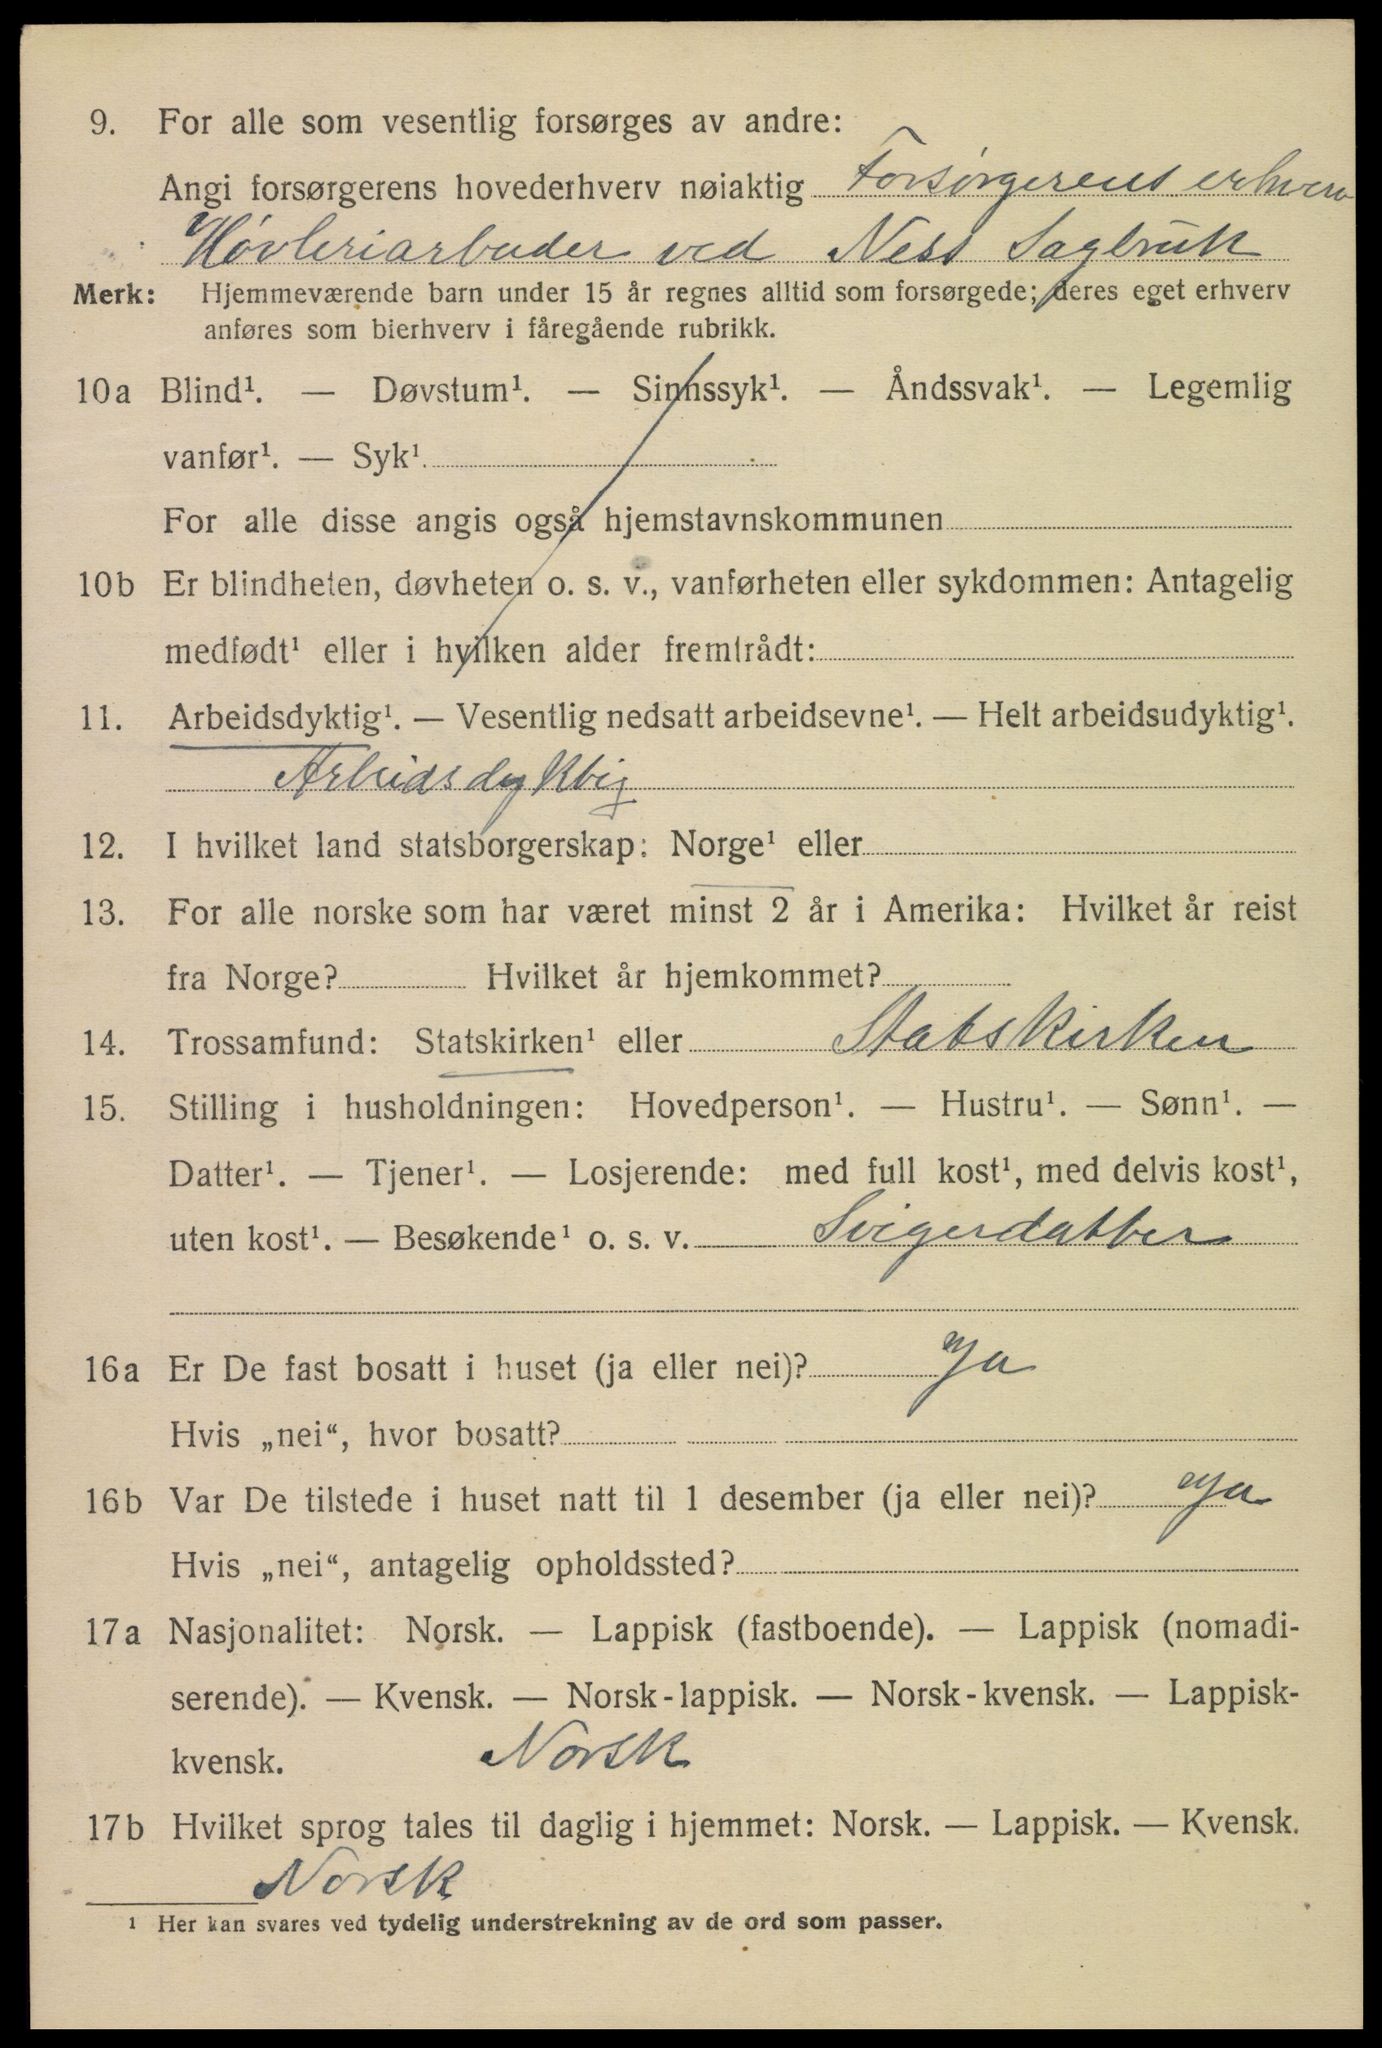 9. For alle som vesentlig forsørges av andre:
Angi forsørgerens hovederhverv nøiaktig Forsørgerens erhverv
Høvleriarbeider ved Ness Sagbruk
Merk: Hjemmeværende barn under 15 år regnes alltid som forsørgede; deres eget erhverv
anføres som bierhverv i fåregående rubrikk.
10a Blind¹. — Døvstum¹. — Sinnssyk¹. — Åndssvak¹. — Legemlig
vanfør¹. — Syk¹.
For alle disse angis også hjemstavnskommunen
10b Er blindheten, døvheten o. s. v., vanførheten eller sykdommen: Antagelig
medfødt¹ eller i hvilken alder fremtrådt:
11. Arbeidsdyktig¹. — Vesentlig nedsatt arbeidsevne¹. — Helt arbeidsudyktig¹.
Arbeidsdyktig
12. I hvilket land statsborgerskap: Norge¹ eller
13. For alle norske som har været minst 2 år i Amerika: Hvilket år reist
fra Norge? Hvilket år hjemkommet?
14. Trossamfund: Statskirken¹ eller Statskirken
15. Stilling i husholdningen: Hovedperson¹. — Hustru¹. — Sønn¹. —
Datter¹. — Tjener¹. — Losjerende: med full kost¹, med delvis kost¹,
uten kost¹. — Besøkende¹ o. s. v. Svigerdatter
16a Er De fast bosatt i huset (ja eller nei)? Ja
Hvis „nei“, hvor bosatt?
16b Var De tilstede i huset natt til 1 desember (ja eller nei)? Ja
Hvis „nei“, antagelig opholdssted?
17a Nasjonalitet: Norsk. — Lappisk (fastboende). — Lappisk (nomadi-
serende). — Kvensk. — Norsk-lappisk. — Norsk-kvensk. — Lappisk-
kvensk. Norsk
17b Hvilket sprog tales til daglig i hjemmet: Norsk. — Lappisk. — Kvensk.
Norsk
¹ Her kan svares ved tydelig understrekning av de ord som passer.